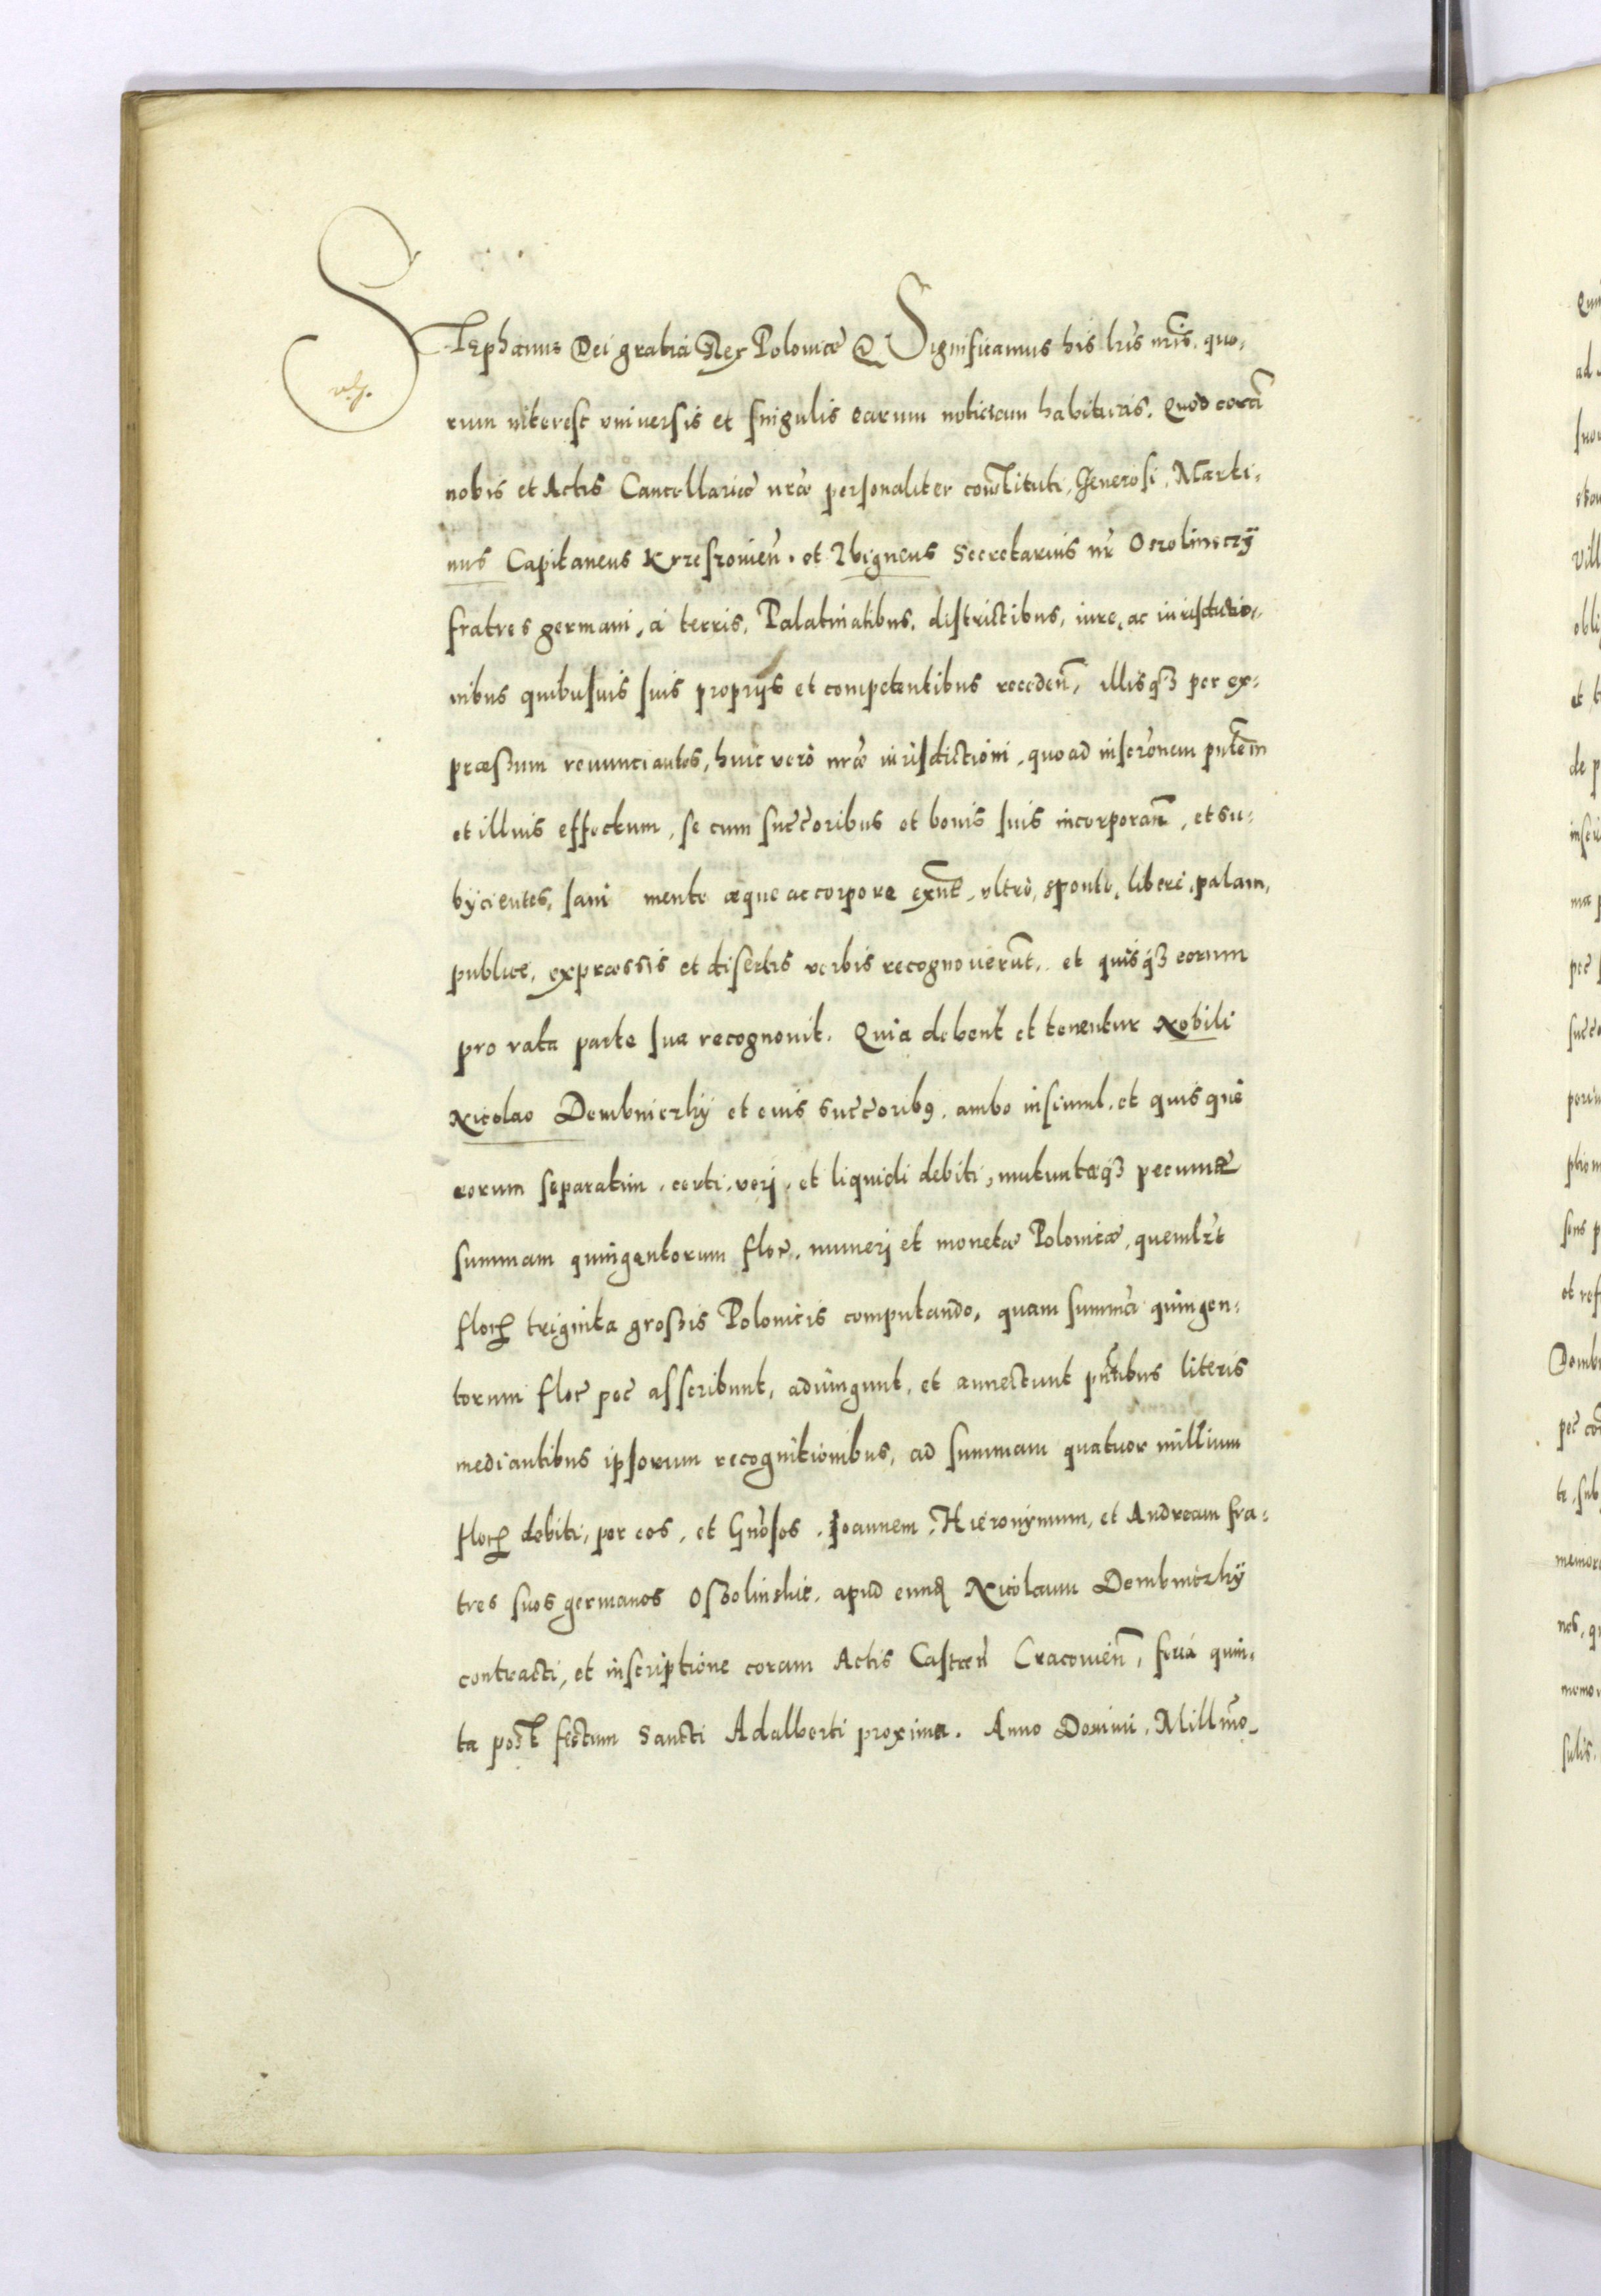 Stephanus Dei gratia Rex Poloniæ & Significamus his lr̃is nr̃is, quo,
rum interest vniversis et singulis earum noticiam habituris. Quod corã
nobis et Actis Cancellariæ nr̃æ personaliter constituti, Generosi, Marti,
nus Capitaneus Krzeszouieñ. et Zbigneus Secretarius nr̃ Oczolinsczÿ
fratres germani, à terris, Palatinatibus, districtibus, iure, ac iurisdictio,,
nibus quibusuis suis proprijs et competentibus recedeñ, illisq3 per ex,
præssum renunciantes, huic verò nr̃æ iurisdictioni, quoad inscr̃onem pñtem
et illius effectum, se cum succ̃oribus et bonis suis incorporañ, et su,
bÿcientes, sani mente æque ac corpore exñt, vltrò, sponte, liberè, palam,
publice, expræssis et disertis verbis recognouerũt, et quisq3 eorum
pro rata parte sua recognouit. Quia debent et tenentur Nobili
Nicolao Dembniczkÿ et eius succ̃orib9, ambo insimul, et quisque
eorum separatim, certi, verj, et liquidi debiti, mutuatæq3 pecuniæ
summam quingentorum flor̃, numerj et monetæ Polonicæ, quemlr̃t
flor̃ triginta grossis Polonicis computando, quam summã quingen,
torum flor̃ pec̃ asscribunt, adiungunt, et annectunt pñtibus literis
mediantibus ipsorum recognitionibus, ad summam quatuor millium
flor̃ debiti, per eos, et Gñosos, Joannem, Hieronÿmum, et Andream fra,
tres suos germanos Ossolinskie, apud eund̃ Nicolaum Dembniczkÿ
contracti, et inscriptione coram Actis Castreñ Cracouieñ, fer̃ia quin,
ta post festum Sancti Adalberti proxima. Anno Domini, Millm̃o